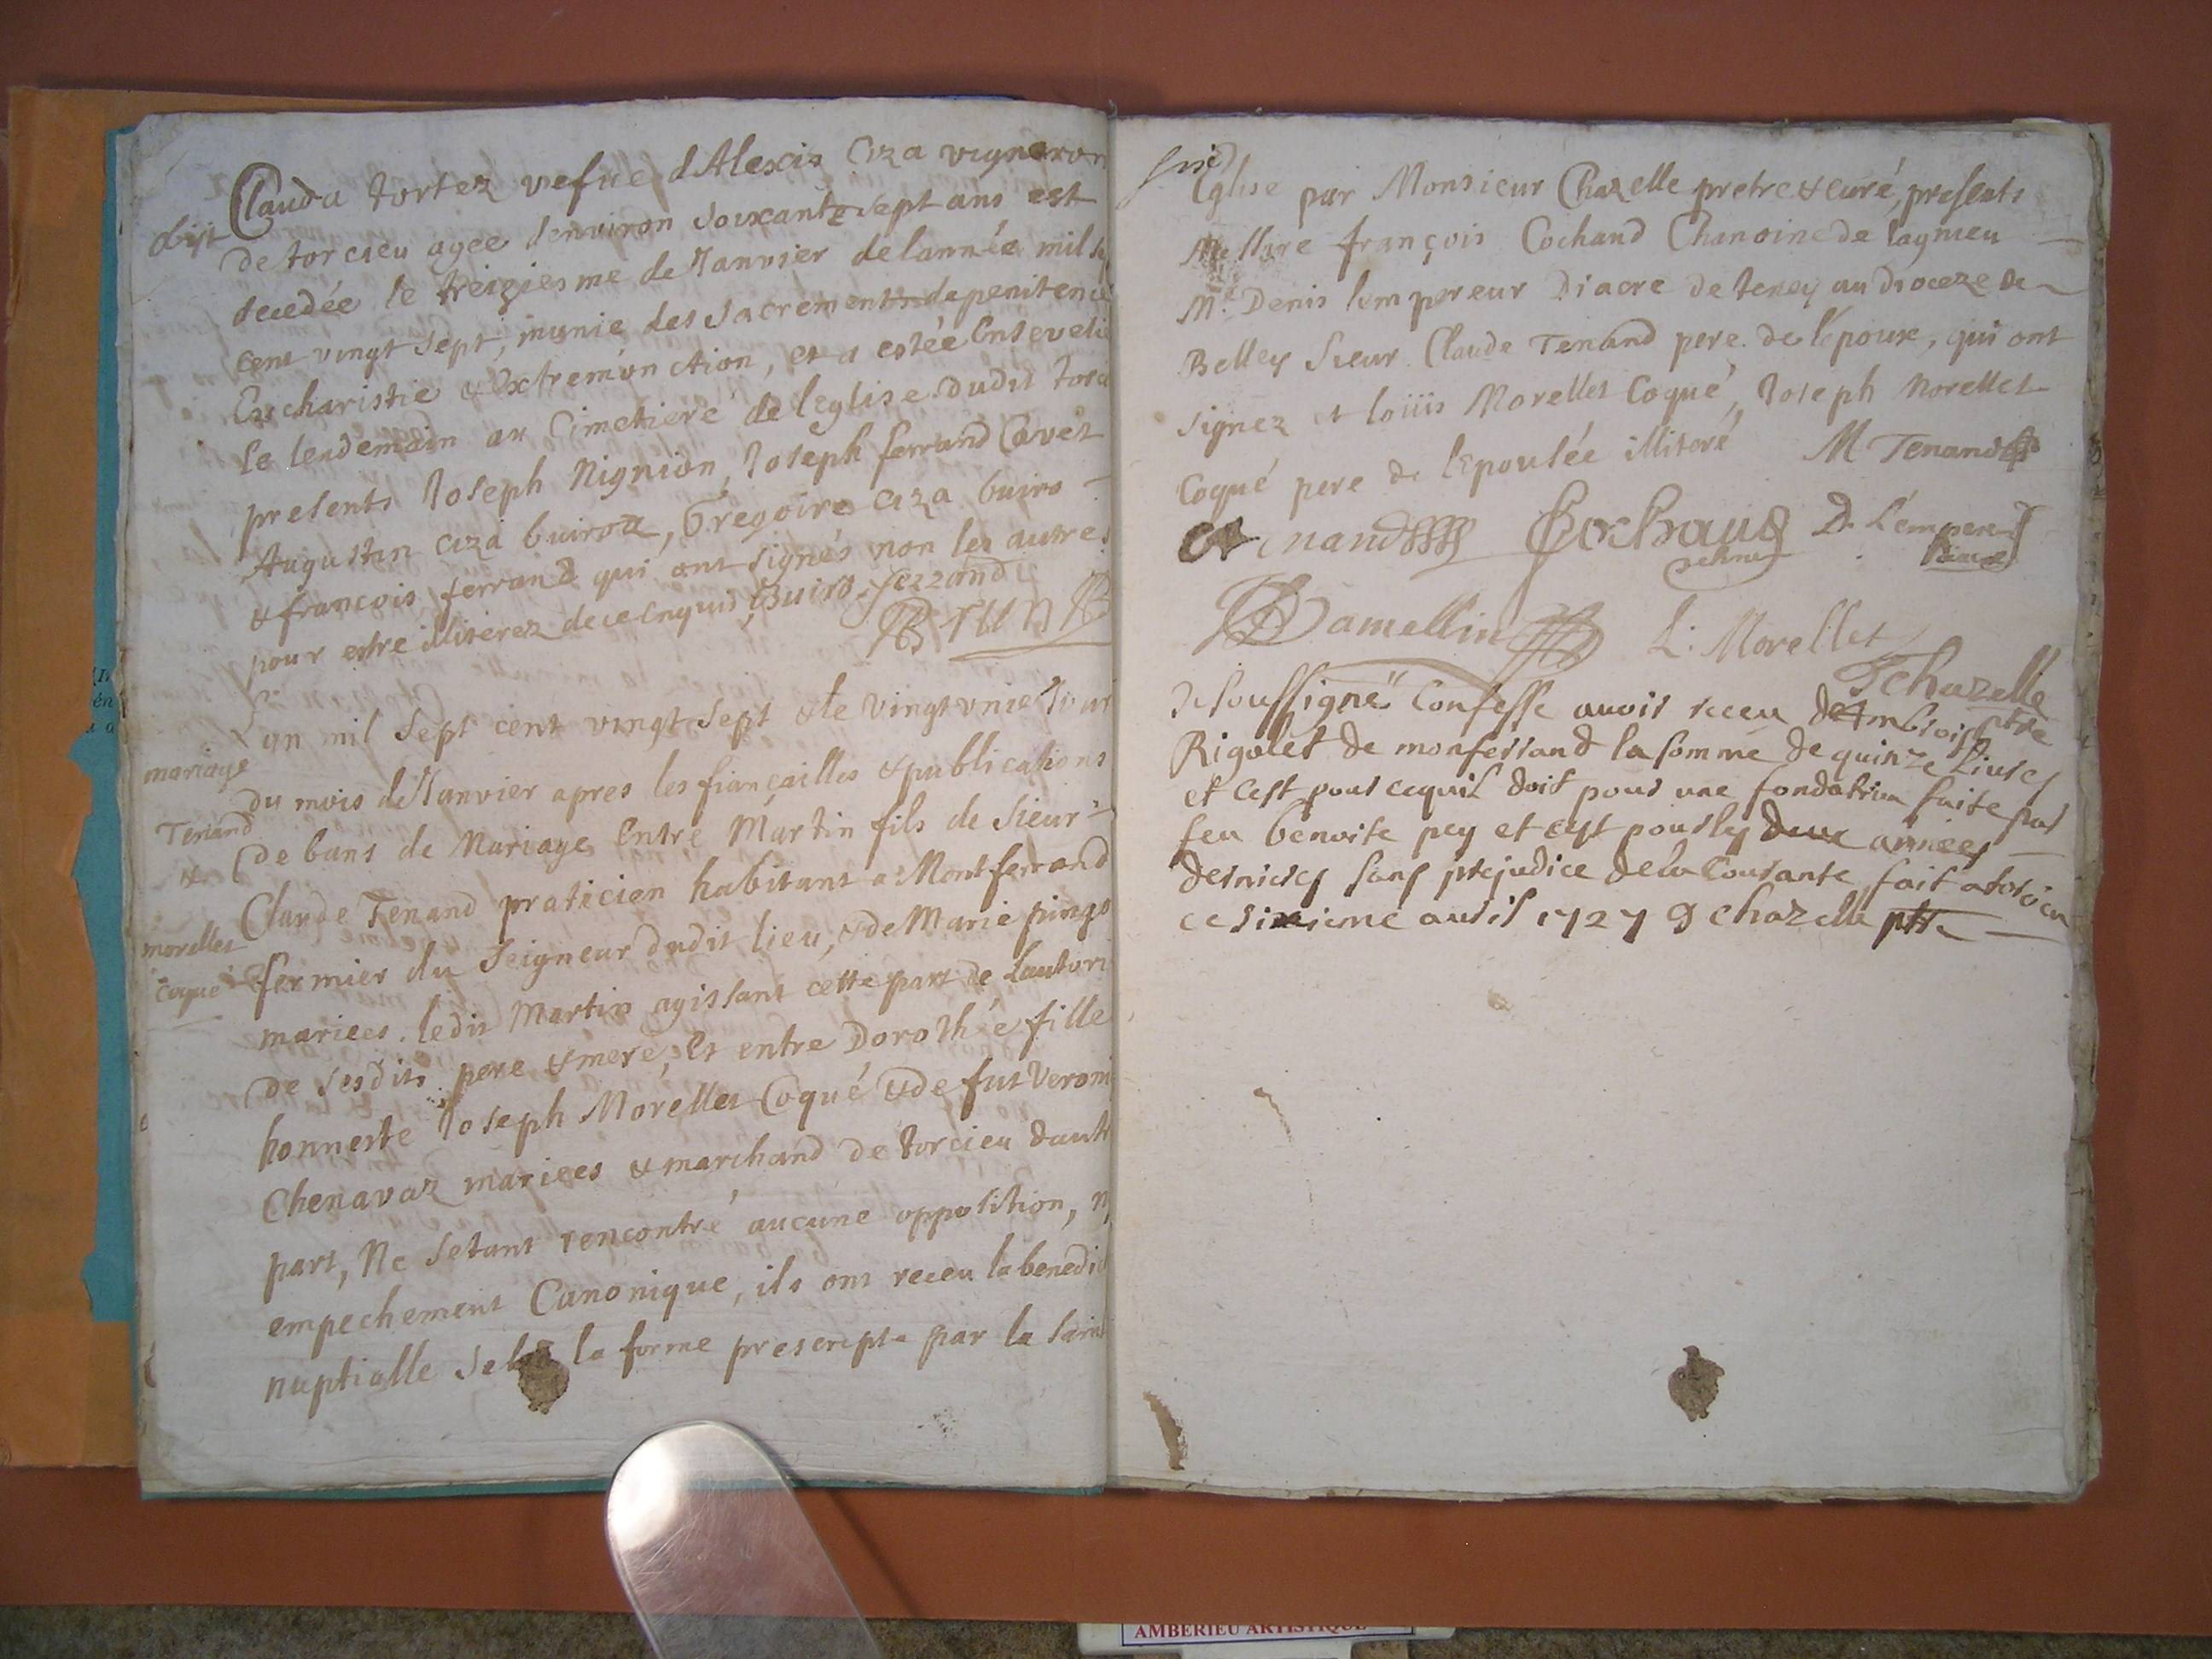 obijt
Clauda tortez vefue d'Alexis Ciza vigneron
de torcieu agee d'environ soixante sept ans est
decedée le treiziesme de Janvier de lannée mil se
cent vingt sept, munie des sacrements de penitence
Eucharistie & Extremonction, et a estée Ensevelie
le lendemain au Cimetiere de leglise dudit torc
presents Joseph Nignion, Joseph ferrand Cavet
Augustin ciza buiroz, Gregoire ciza buiro -
& francois ferrand qui ont signés non les autres
pour estre illiterez de ce enquis, Buiro ferrand
Brun
mariage
Tenand
&
morellet
coqué
L'an mil sept cent vingt sept & le vingt vnie Jour
du mois de Janvier apres les fiançailles & publications
de bans de Mariage Entre Martin fils de sieur -
Claude Tenand praticien habitant a Montferrand
fermier du Seigneur dudit lieu, & de Marie pingo
mariees, ledit Martin agissant cette part de Lautori
de sesdits pere & mere, Et entre Dorothée fille
honneste Joseph Morellet Coqué & de fut Veroni
Chenavaz mariees & marchand de torcieu dautr
part, Ne setant rencontré aucune opposition, n
empechement Canonique, ils ont receu la benedic
nuptialle selon la forme prescripte par la sain
Eglise par Monsieur Chazelle pretre & curé, presents
Messire françois Cochand Chanoine de lagnieu
Mr. Denis lempereur Diacre de tenay au dioceze de
Belley sieur Claude Tenand pere de lepoux, qui ont
signez et loüis Morellet Coqué, Joseph Morellet
Coqué pere de lepousée illiteré M Tenand
Cochand D. Lempereur
diacre
Damellin L: Morellet
J chazelle
ptre
Je soussigné Confesse auoir receu de Ambroise
Rigolet de monferrand la somme de quinze liures
et cest pour cequil doit pour une fondation faite par
feu benoite pey et cest pour les deux années
dernieres sans prejudice dela Courante fait a torcieu
ce sixieme auril 1727 J chazelle ptre
AMBERIEU ARTISTIQUE